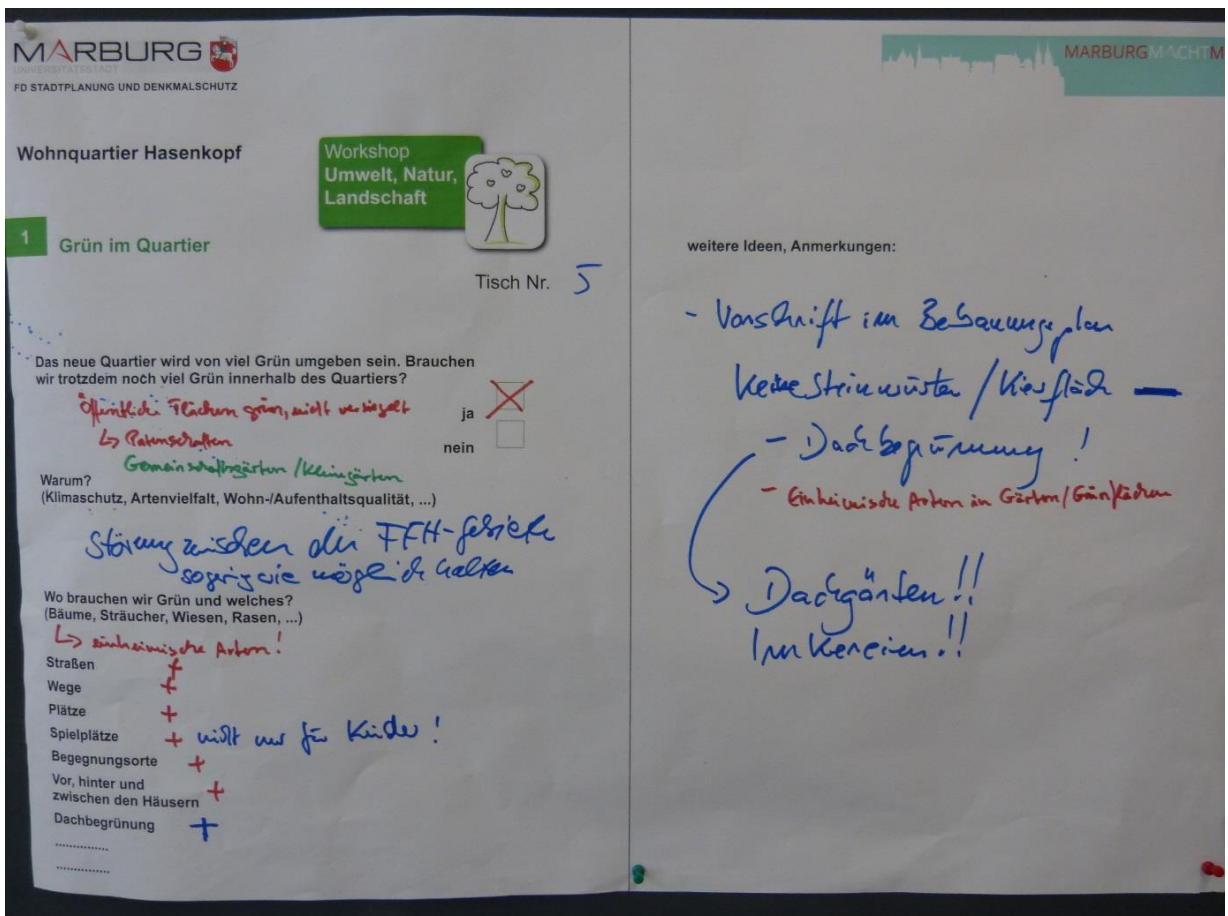 MARBURG
UNIVERSITÄTSSTADT
FD STADTPLANUNG UND DENKMALSCHUTZ
MARBURGMACHTM
Wohnquartier Hasenkopf
Workshop
Umwelt, Natur,
Landschaft
1 Grün im Quartier
Tisch Nr. 5
Das neue Quartier wird von viel Grün umgeben sein. Brauchen
wir trotzdem noch viel Grün innerhalb des Quartiers?
Öffentliche Flächen grün, nicht versiegelt
ja
↳ Patenschaften
nein
Gemeinschaftsgärten / Kleingärten
Warum?
(Klimaschutz, Artenvielfalt, Wohn-/Aufenthaltsqualität, ...)
Störung zwischen den FFH-Gebieten
so gering wie möglich halten
Wo brauchen wir Grün und welches?
(Bäume, Sträucher, Wiesen, Rasen, ...)
↳ einheimische Arten!
Straßen +
Wege +
Plätze +
Spielplätze + nicht nur für Kinder!
Begegnungsorte +
Vor, hinter und
zwischen den Häusern +
Dachbegrünung +
...............
...............
weitere Ideen, Anmerkungen:
- Vorschrift im Bebauungsplan
Keine Steinwüsten / Kiesfläch
- Dachbegrünung!
- Einheimische Arten in Gärten/Grünflächen
Dachgärten!!
Imkereien!!